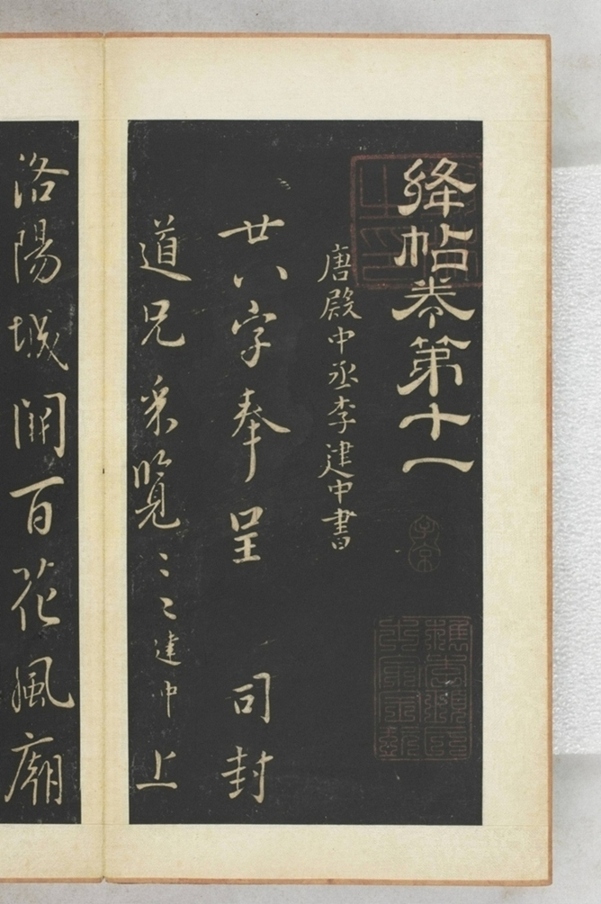 絳帖卷第十一
唐殿中丞李建中書
廿八字奉呈 司封
道兄采覽〻〻建中上
洛陽城開百花風廟